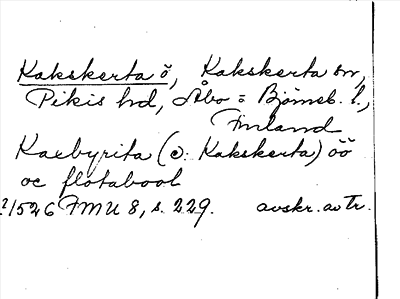 Kakskerta ö, Kakskerta sn,
Pikis hd, Åbo = Björneb. l.,
Finland
Kaxbyrita (ɔ: Kakskerta) öö
oc flötabool
?/1526 FMU 8, s. 229. avskr. av Tr.